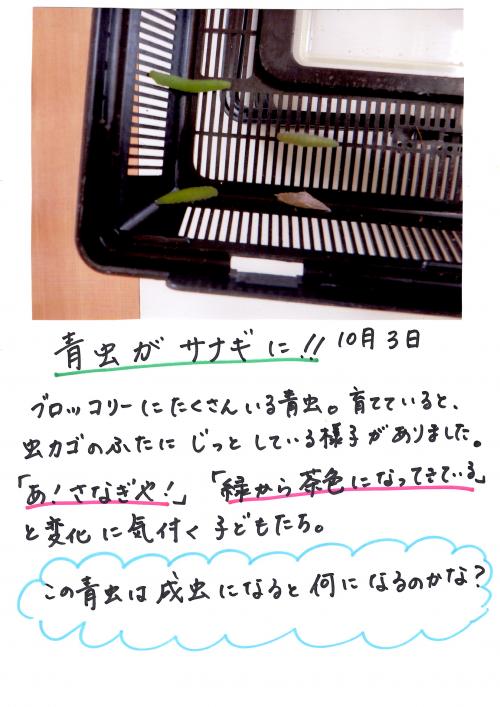 青虫が サナギに!! 10月3日
ブロッコリーにたくさんいる青虫。育てていると、
虫カゴのふたに じっとしている様子がありました。
「あ!さなぎや!」 「緑から茶色になってきている」
と変化に気付く子どもたち。
この青虫は成虫になると何になるのかな?